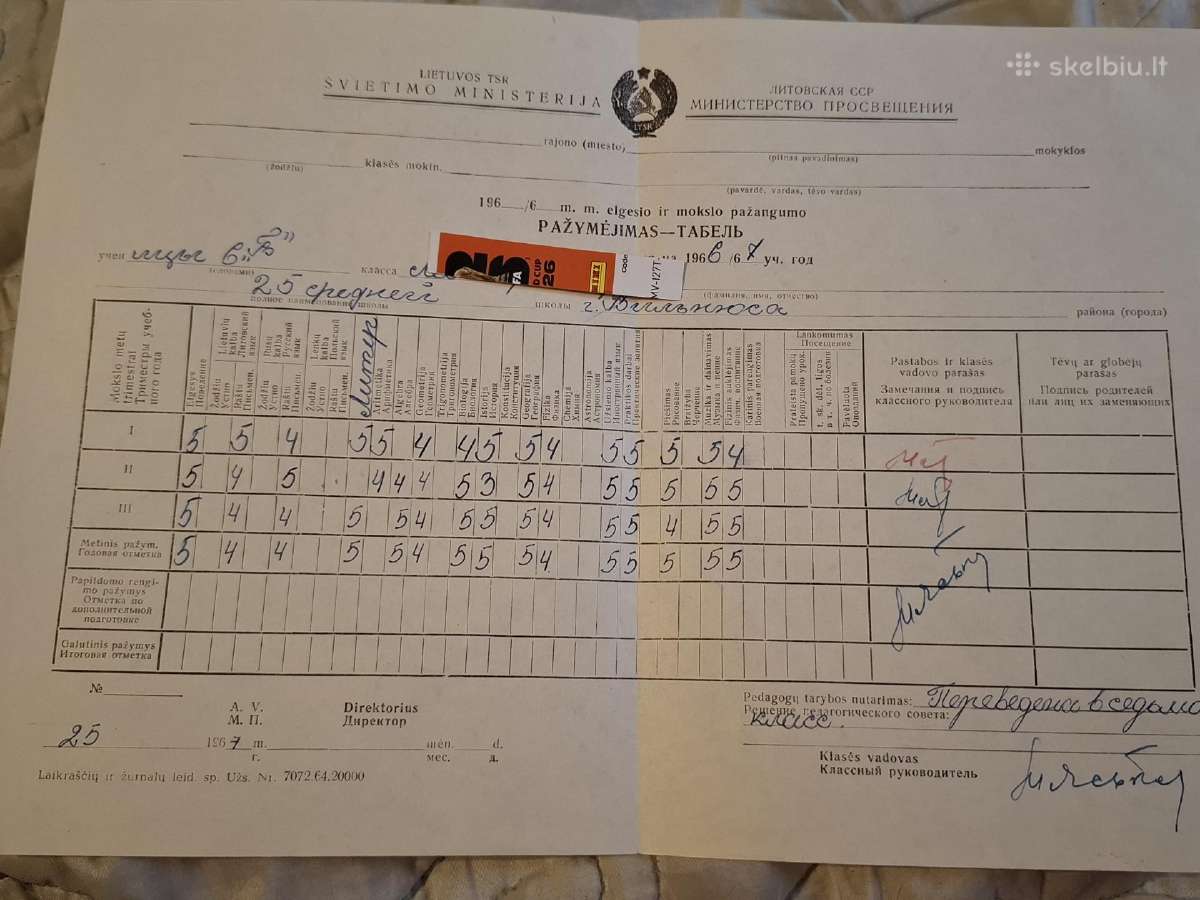 skelbiu.lt
LIETUVOS TSR
ŠVIETIMO MINISTERIJA
LTSR
ЛИТОВСКАЯ ССР
МИНИСТЕРСТВО ПРОСВЕЩЕНИЯ
rajono (miesto) mokyklos
(pilnas pavadinimas)
(žodžiu) klasės mokin.
(pavardė, vardas, tėvo vardas)
196 /6 m. m. elgesio ir mokslo pažangumo
PAŽYMĖJIMAS—ТАБЕЛЬ
учен ицы 6 „Б" класса на 1966/67 уч. год
(словами)
(фамилия, имя, отчество)
FA
D CUP
26
MINI
code
MV-127T
25 средней школы г. Вильнюса района (города)
полное наименование школы
Mokslo metų trimestrai Триместры учебного года
Elgesys Поведение
Lietuvių kalba Литовский язык
Žodžiu Устно
Raštu Письмен.
Rusų kalba Русский язык
Žodžiu Устно
Raštu Письмен.
Lenkų kalba Польский язык
Žodžiu Устно
Raštu Письмен.
Литер
Aritmetika Арифметика
Algebra Алгебра
Geometrija Геометрия
Trigonometrija Тригонометрия
Biologija Биология
Istorija История
Konstitucija Конституция
Geografija География
Fizika Физика
Chemija Химия
Astronomija Астрономия
Užsienio kalba Иностранный язык
Praktikos darbai Практические занятия
Piešimas Рисование
Braižyba Черчение
Muzika ir dainavimas Музыка и пение
Fizinis auklėjimas Физич. воспитание
Karinis parengimas Военная подготовка
Lankomumas Посещение
Praleista pamokų Пропущено урок.
t. sk. dėl ligos в т. ч. по болезни
Pavėluota Опозданий
Pastabos ir klasės vadovo parašas
Замечания и подпись классного руководителя
Tėvų ar globėjų parašas
Подпись родителей или лиц их заменяющих
I 5 5 4 5 5 4 4 5 5 4 5 5 5 5 4
II 5 4 5 4 4 4 5 3 5 4 5 5 5 5 5
III 5 4 4 5 5 4 5 5 5 4 5 5 4 5 5
Metinis pažym. Годовая отметка 5 4 4 5 5 4 5 5 5 4 5 5 5 5 5
Papildomo rengimo pažymys Отметка по дополнительной подготовке
Galutinis pažymys Итоговая отметка
№
A. V. Direktorius
М. П. Директор
25 1967 m. mėn. d.
г. мес. д.
Laikraščių ir žurnalų leid. sp. Užs. Nr. 7072.64.20000
Pedagogų tarybos nutarimas: Переведена в седьмо
Решение педагогического совета: класс.
Klasės vadovas
Классный руководитель